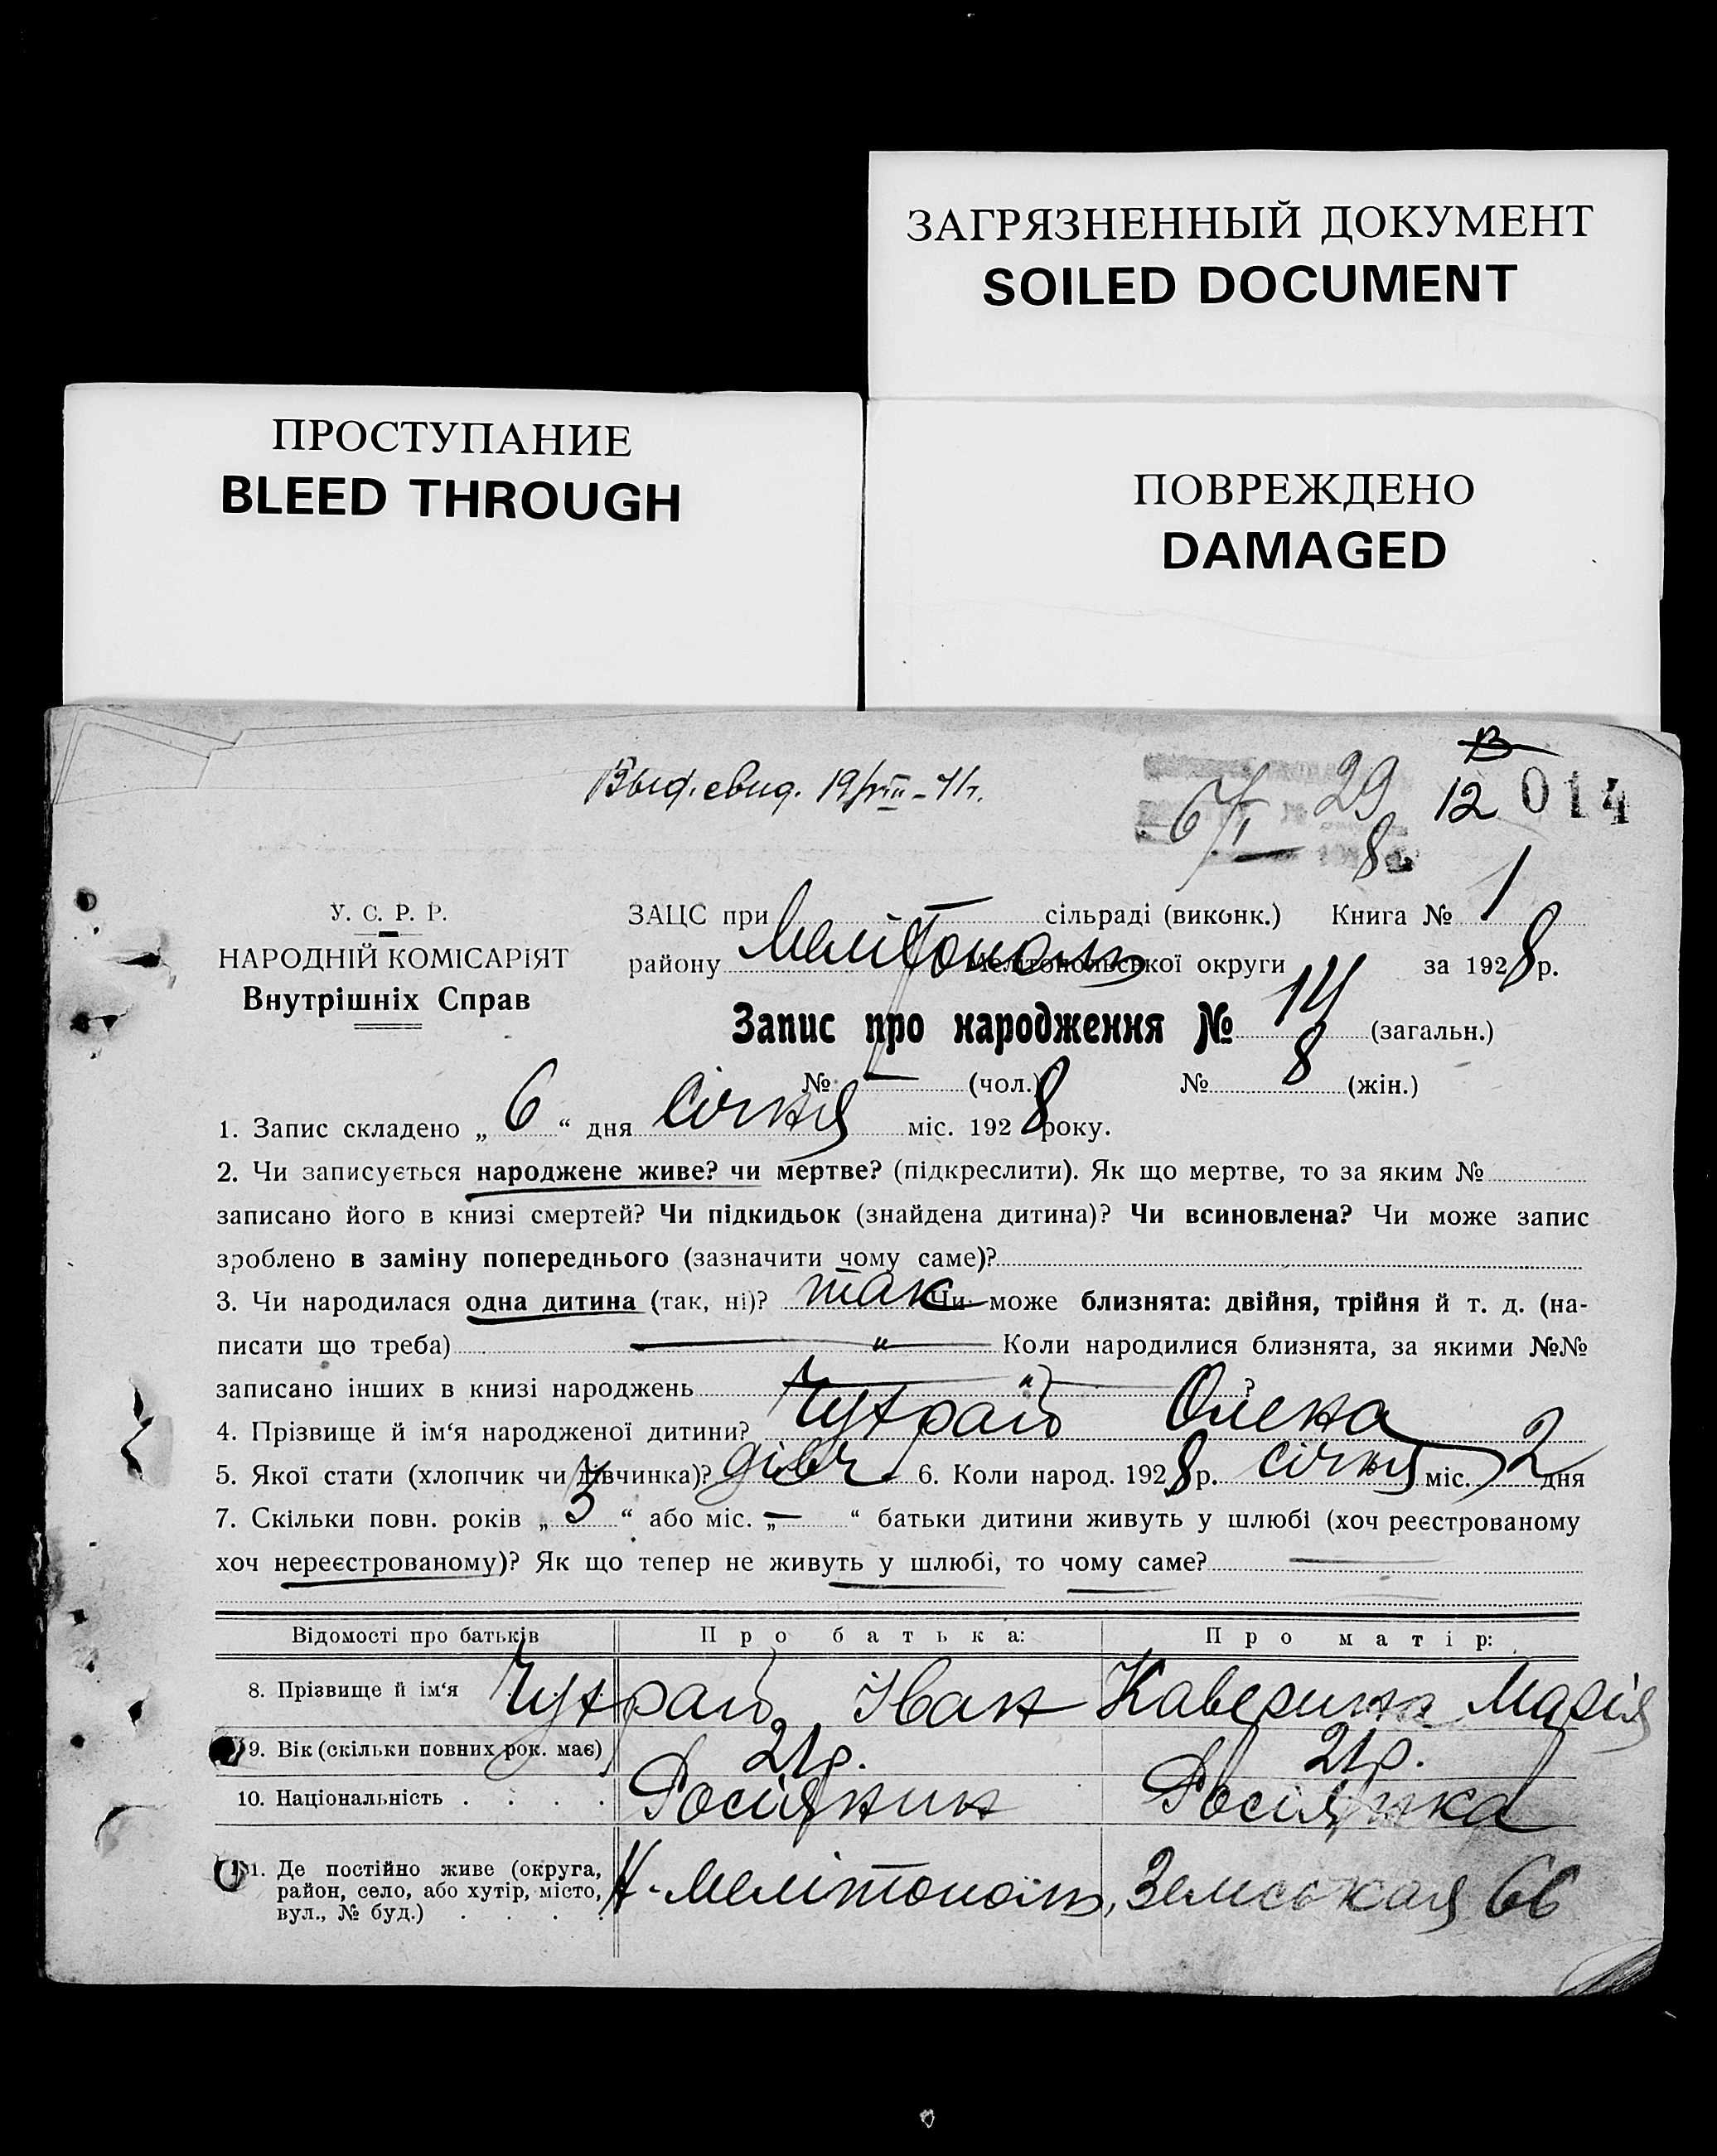 ЗАГРЯЗНЕННЫЙ ДОКУМЕНТ
SOILED DOCUMENT
ПРОСТУПАНИЕ
BLEED THROUGH
ПОВРЕЖДЕНО
DAMAGED
Выд. свид. 19/VIII-41г.
6/I 29 12 014
8
У. С. Р. Р.
НАРОДНІЙ КОМІСАРІЯТ
Внутрішніх Справ
ЗАЦС при сільраді (виконк.) Книга № 1
району Мелітополь Мелітопольської округи за 1928 р.
Запис про народження № 14 (загальн.)
№ — (чол.) № 8 (жін.)
1. Запис складено „ 6 “ дня Січня міс. 1928 року.
2. Чи записується народжене живе? чи мертве? (підкреслити). Як що мертве, то за яким №
записано його в книзі смертей? Чи підкидьок (знайдена дитина)? Чи всиновлена? Чи може запис
зроблено в заміну попереднього (зазначити чому саме)?
3. Чи народилася одна дитина (так, ні)? так Чи може близнята: двійня, трійня й т. д. (на-
писати що треба) — „ — Коли народилися близнята, за якими №№
записано інших в книзі народжень — „ — ?
4. Прізвище й ім‘я народженої дитини? Олена
5. Якої стати (хлопчик чи дівчинка)? дівч 6. Коли народ. 1928 р. січня міс. 2 дня
7. Скільки повн. років „ 3 “ або міс. „ — “ батьки дитини живуть у шлюбі (хоч реєстрованому
хоч нереєстрованому)? Як що тепер не живуть у шлюбі, то чому саме? —
Відомості про батьків Про батька: Про матір:
8. Прізвище й ім‘я Іван Каверина Марія
9. Вік (скільки повних рок. має) 21р. 21р.
10. Національність . . . . Росіянин Росіянка
11. Де постійно живе (округа,
район, село, або хутір, місто,
вул., № буд.) . . . . Мелітополь, Земськая 66